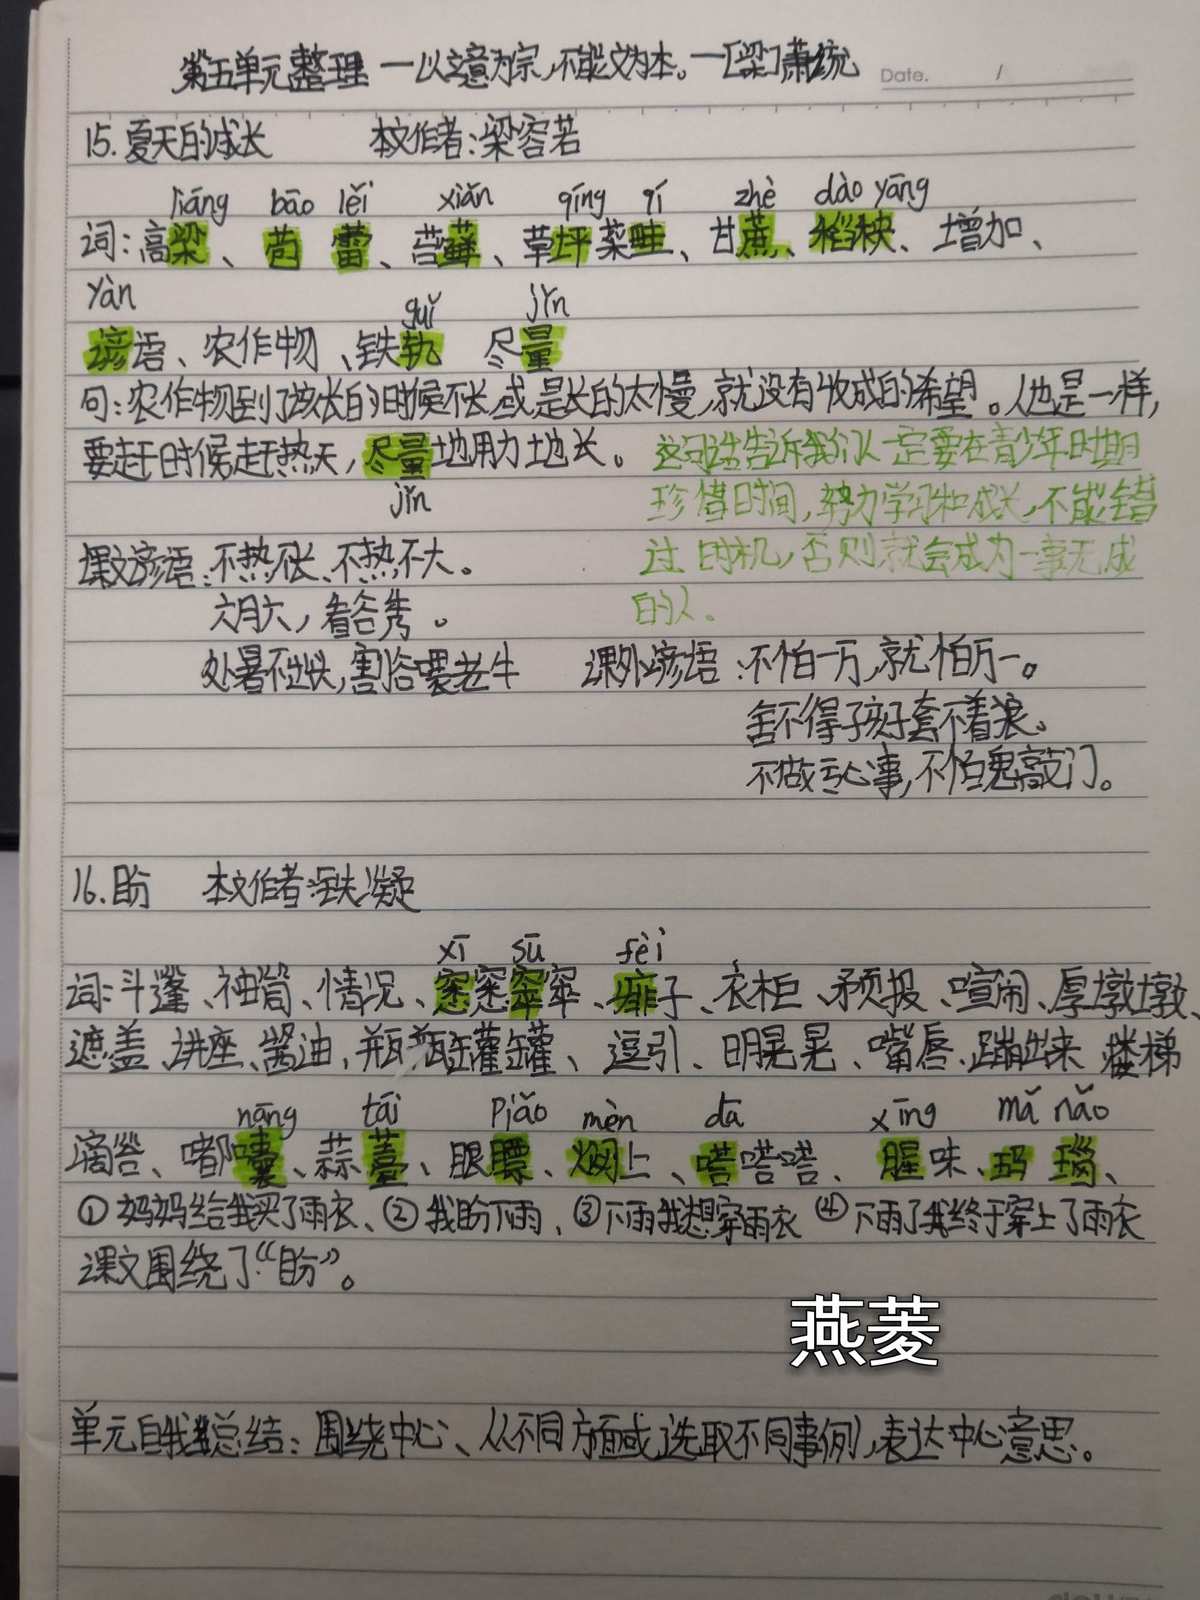 第五单元整理 一以立意为宗,不能文为本。一[梁]萧统
Date. /
15.夏天的成长 本文作者:梁容若
liāng bāo lěi xiǎn qíng qí zhè dào yāng
词:高梁、苞蕾、苔藓、草坪菜畦、甘蔗、稻秧、增加、
yàn guǐ jǐn
谚语、农作物、铁轨 尽量
句:农作物到了该长的时候不长,或是长的太慢,就没有收成的希望。人也是一样,
要赶时候赶热天,尽量地用力地长。
jǐn
这句话告诉我们人一定要在青少年时期
珍惜时间,努力学习和成长,不能错
过时机,否则就会成为一事无成
的人.
课文谚语:不热不长、不热不大。
六月六,看谷秀。
处暑不出头,割谷喂老牛
课外谚语:不怕一万,就怕万一。
舍不得孩子套不着狼。
不做亏心事,不怕鬼敲门。
16.盼 本文作者:铁凝
xī sū fèi
词:斗篷、袖筒、情况、窸窸窣窣、痱子、衣柜、预报、喧闹、厚墩墩、
遮盖、讲座、酱油,瓶瓶罐罐、逗引、明晃晃、嘴唇、蹦出来 楼梯
nāng tái piǎo mèn dā xīng mǎ nǎo
滴答、嘟囔、蒜薹、眼瞟、焖上、嗒嗒嗒、腥味、玛瑙、
①妈妈给我买了雨衣、②我盼下雨,③下雨我想穿雨衣 ④下雨了我终于穿上了雨衣
课文围绕了“盼”。
燕菱
单元自我总结:围绕中心、从不同方面或选取不同事例,表达中心意思。